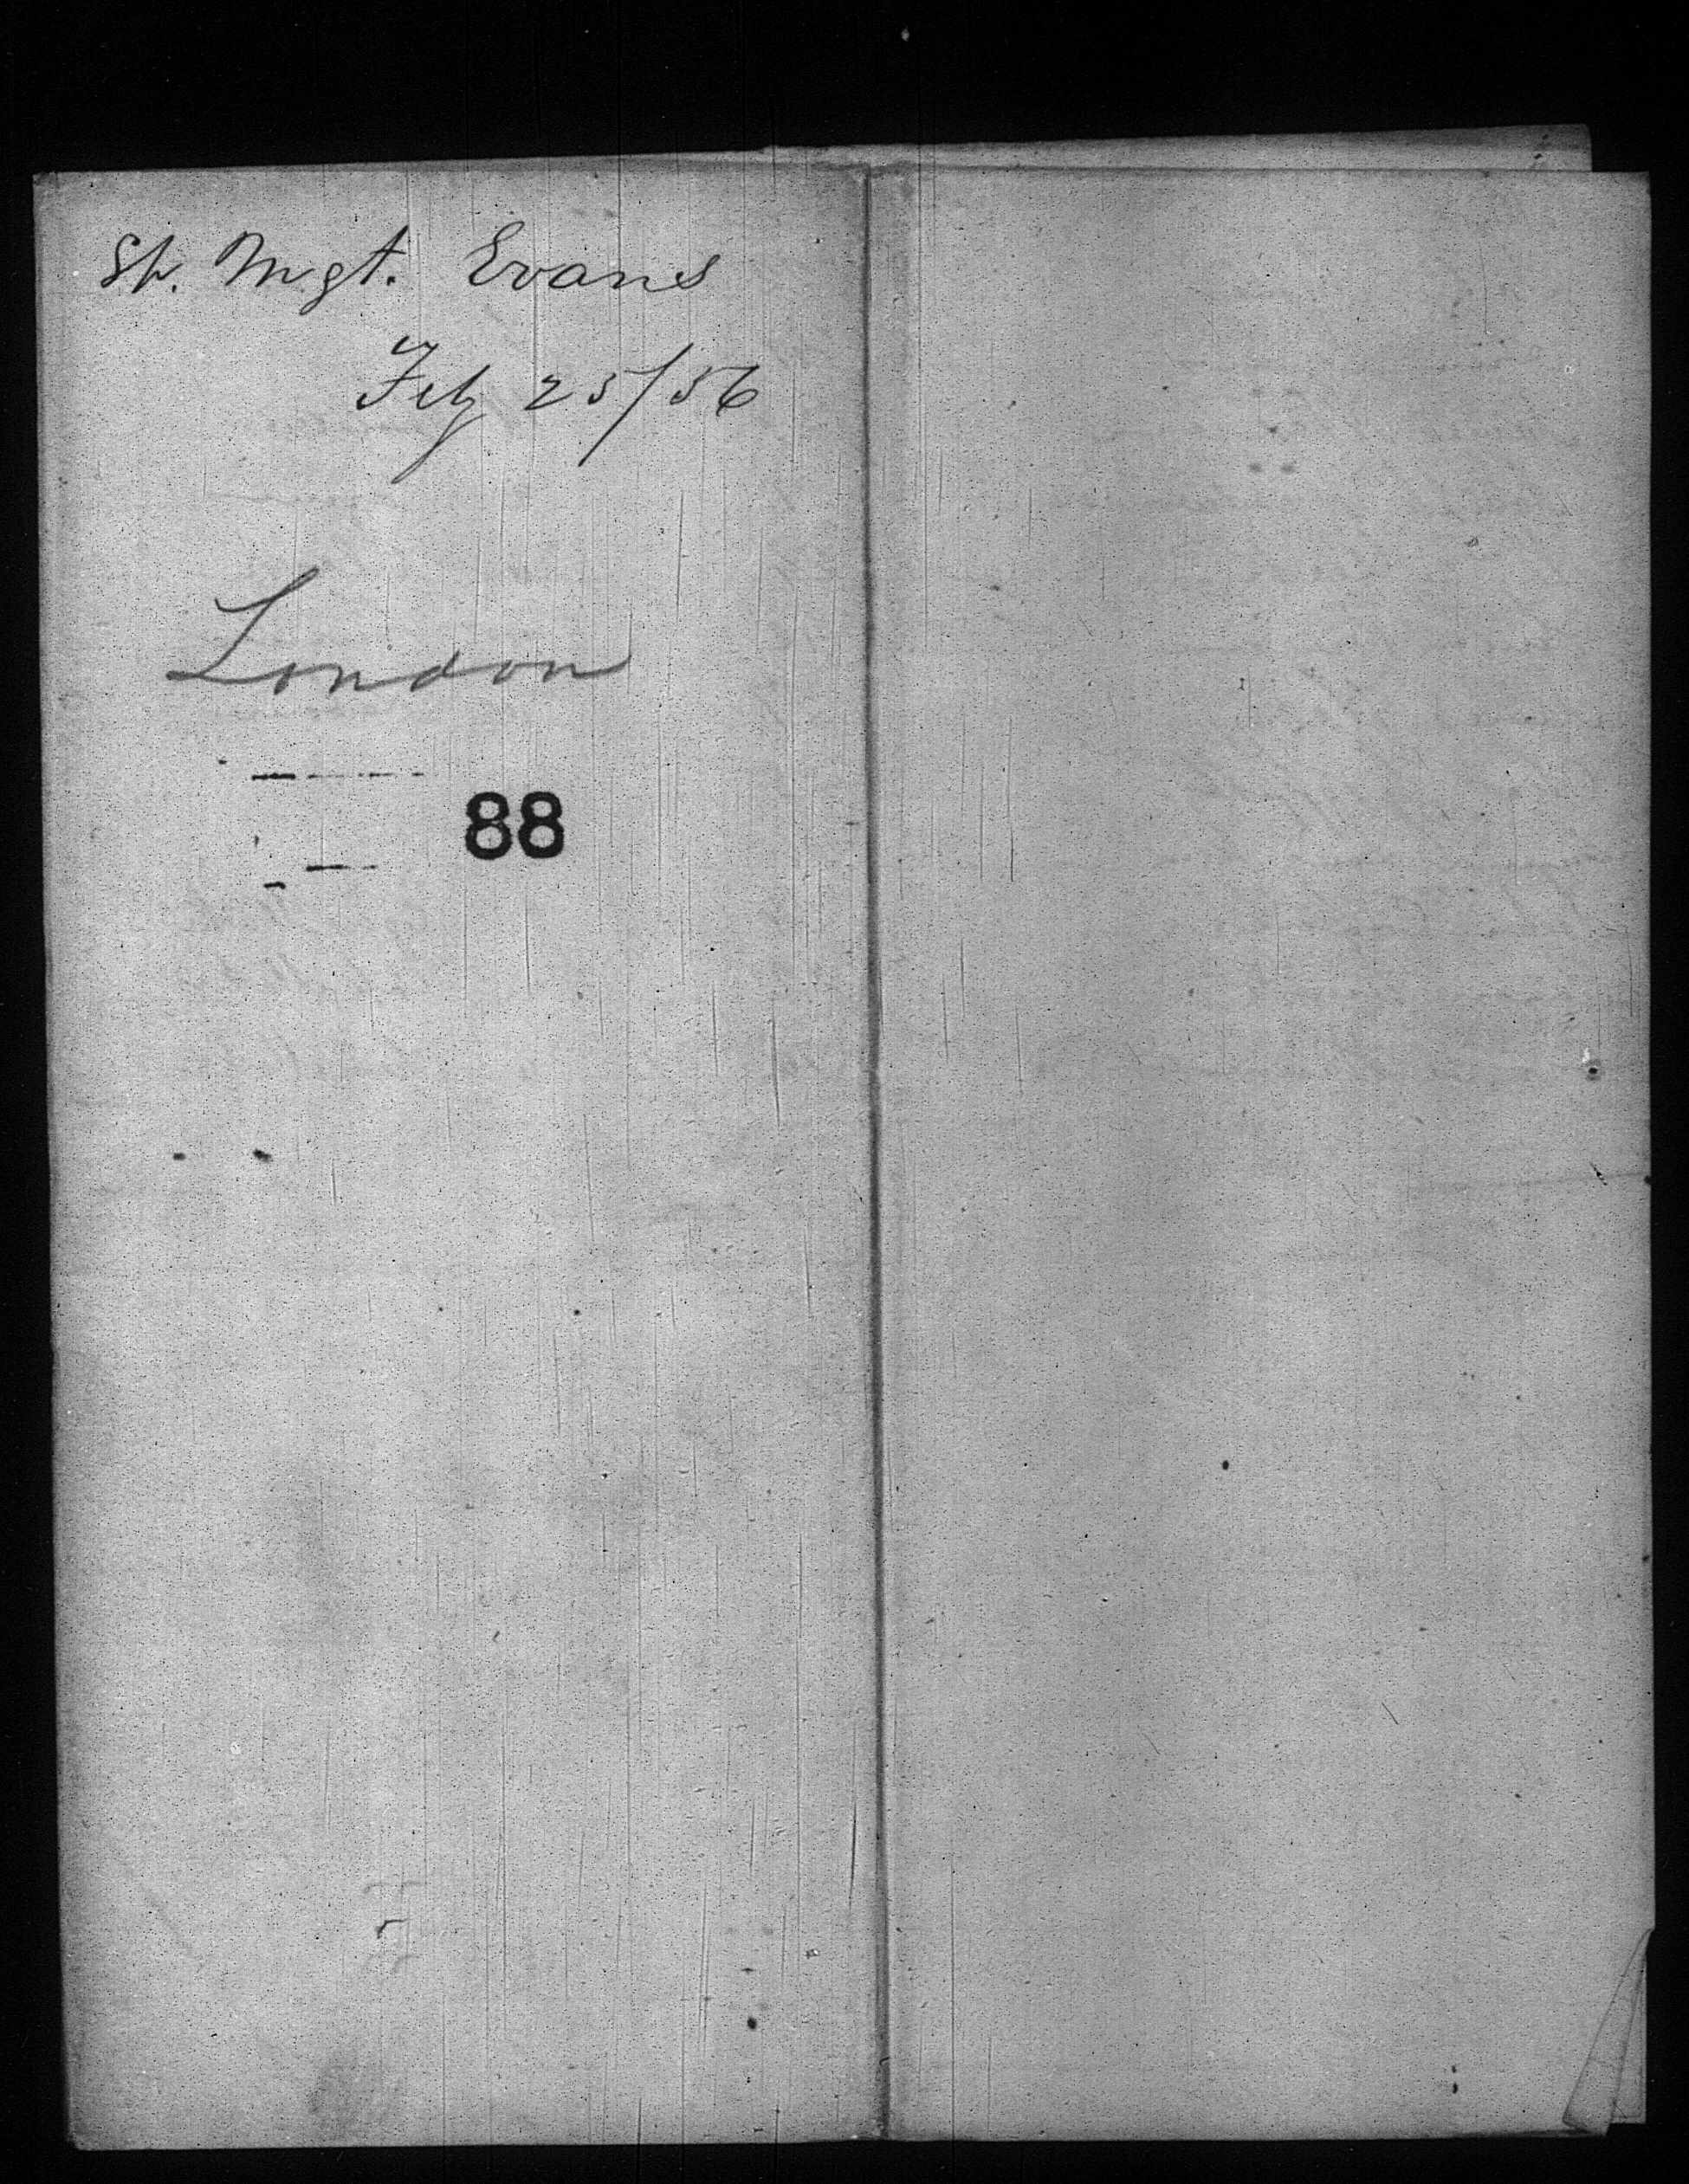 St. Mgt. Evans
Feby 25/56
London
88